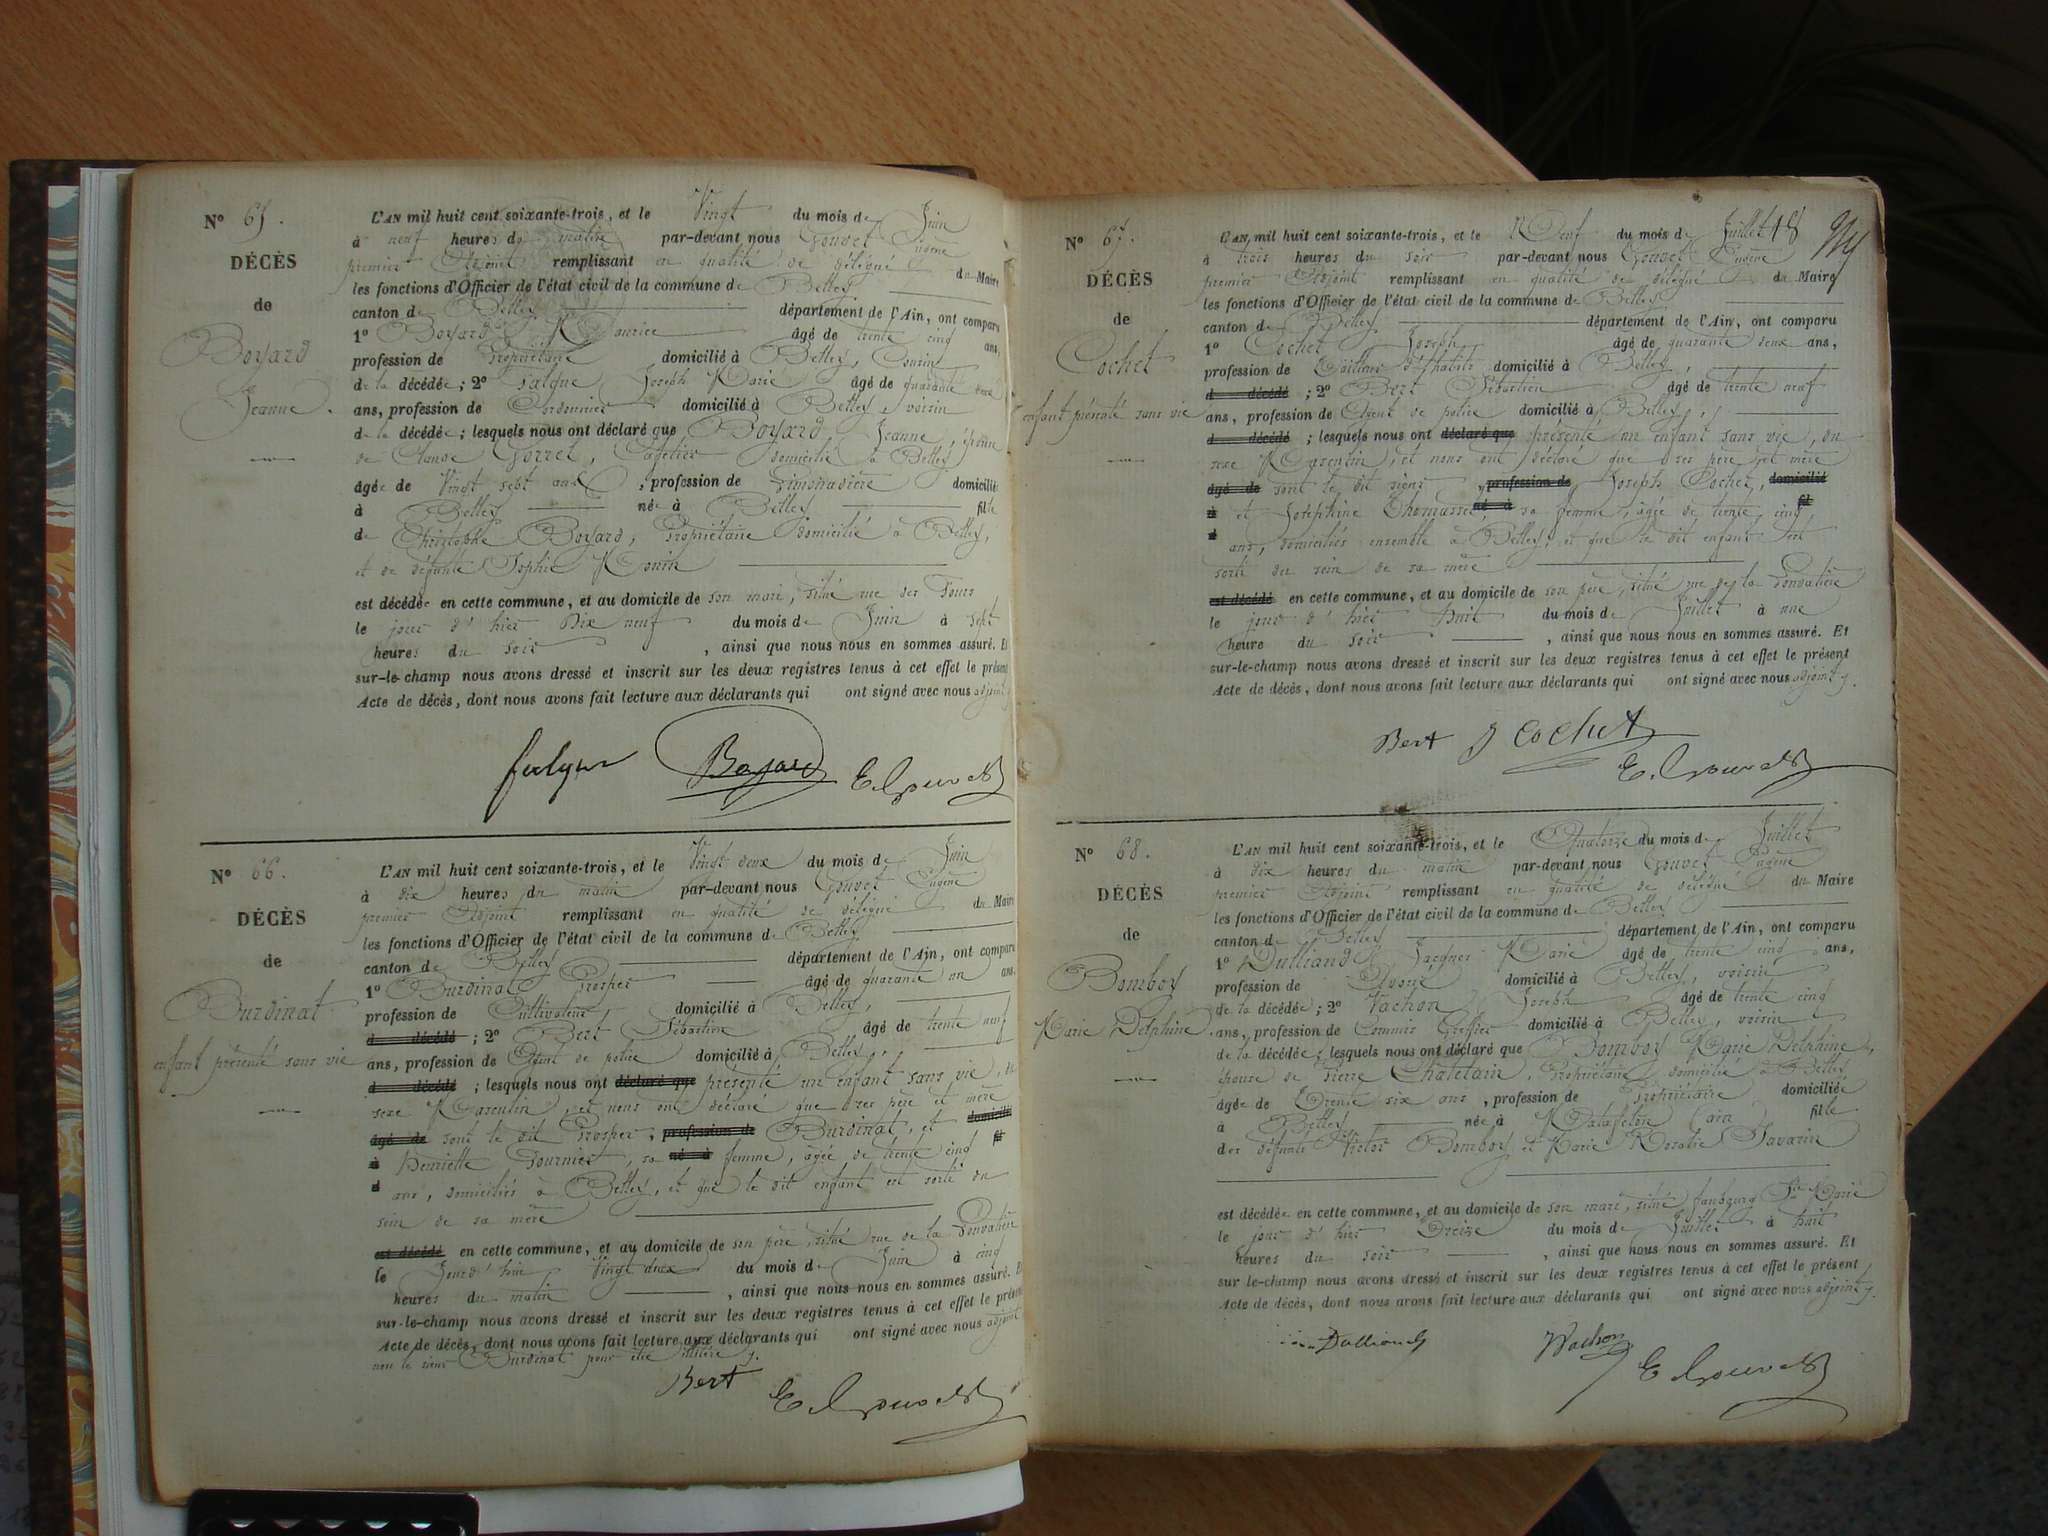 N° 65.
DÉCÈS
de
Boyard
Jeanne.
L'AN mil huit cent soixante-trois, et le Vingt du mois de Juin
à neuf heures du matin par-devant nous Gouvet Eugène
premier Adjoint remplissant en qualité de délégué du Maire
les fonctions d'Officier de l'état civil de la commune de Belley
canton de Belley département de l'Ain, ont comparu
1° Boyard Maurice âgé de trente cinq ans,
profession de Propriétaire domicilié à Belley, Cousin
de la décédée ; 2° Joseph Marie âgé de quarante
ans, profession de Cordonnier domicilié à Belley, voisin
de la décédée ; lesquels nous ont déclaré que Boyard Jeanne, épouse
de Claude Gorrel, Cafetier domicilié à Belley
âgée de Vingt sept ans, profession de Limonadière domicilié
à Belley née à Belley fille
de Christophe Boyard, Propriétaire domicilié à Belley,
et de défunte Sophie Monin
est décédée en cette commune, et au domicile de son mari, situé rue des Tours
le jour d'hier Dix neuf du mois de Juin à sept
heures du soir, ainsi que nous nous en sommes assuré. Et
sur-le-champ nous avons dressé et inscrit sur les deux registres tenus à cet effet le présent
Acte de décès, dont nous avons fait lecture aux déclarants qui ont signé avec nous adjoint
Boyard E. Gouvet
N° 66.
DÉCÈS
de
Burdinat
enfant présenté sans vie
L'AN mil huit cent soixante-trois, et le Vingt deux du mois de Juin
à dix heures du matin par-devant nous Gouvet Eugène
premier Adjoint remplissant en qualité de délégué du Maire
les fonctions d'Officier de l'état civil de la commune de Belley
canton de Belley département de l'Ain, ont comparu
1° Burdinat Prosper âgé de quarante un ans,
profession de Cultivateur domicilié à Belley,
d décédé ; 2° Bert Sébastien âgé de trente neuf
ans, profession de Agent de police domicilié à Belley,
d décédé ; lesquels nous ont déclaré que présenté un enfant sans vie, du
sexe Masculin, et nous ont déclaré que ses père et mère
âgé de sont le dit Prosper, profession de Burdinat, et domicilié
à Henriette Fournier, sa né à femme, agée de trente cinq fil
d ans, domiciliés à Belley, et que le dit enfant est sorti du
sein de sa mère
est décédé en cette commune, et au domicile de son père, situé rue de la
le Jourd'hui Vingt deux du mois de Juin à cinq
heures du matin, ainsi que nous nous en sommes assuré. Et
sur-le-champ nous avons dressé et inscrit sur les deux registres tenus à cet effet le présent
Acte de décès, dont nous avons fait lecture aux déclarants qui ont signé avec nous adjoint
non le sieur Burdinat pour être illétéré
Bert E. Gouvet
18
N° 67.
DÉCÈS
de
Cochet
enfant présenté sans vie
L'AN mil huit cent soixante-trois, et le Neuf du mois de Juillet
à trois heures du soir par-devant nous Gouvet Eugène
premier Adjoint remplissant en qualité de délégué du Maire
les fonctions d'Officier de l'état civil de la commune de Belley
canton de Belley département de l'Ain, ont comparu
1° Cochet Joseph âgé de quarante deux ans,
profession de Tailleur d'habits domicilié à Belley
d décédé ; 2° Bert Sébastien âgé de trente neuf
ans, profession de Agent de police domicilié à Belley,
d décédé ; lesquels nous ont déclaré que présenté un enfant sans vie, du
sexe Masculin, et nous ont déclaré que ses père et mère
âgé de sont le dit sieur profession de Joseph Cochet, domicilié
à et Joséphine Thomasset né à sa femme, agée de trente cinq fil
d ans, domiciliés ensemble à Belley, et que le dit enfant est
sorti du sein de sa mère
est décédé en cette commune, et au domicile de son père, situé rue de la
le jour d'hier huit du mois de Juillet à une
heure du soir, ainsi que nous nous en sommes assuré. Et
sur-le-champ nous avons dressé et inscrit sur les deux registres tenus à cet effet le présent
Acte de décès, dont nous avons fait lecture aux déclarants qui ont signé avec nous adjoint
Bert J Cochet
E. Gouvet
N° 68.
DÉCÈS
de
Bomboy
Marie Delphine.
L'AN mil huit cent soixante-trois, et le Quatorze du mois de Juillet
à dix heures du matin par-devant nous Gouvet Eugène
premier Adjoint remplissant en qualité de délégué du Maire
les fonctions d'Officier de l'état civil de la commune de Belley
canton de Belley département de l'Ain, ont comparu
1° Dulliand Jacques Marie âgé de trente cinq ans,
profession de Avoué domicilié à Belley, voisin
de la décédée ; 2° Vachon Joseph âgé de trente cinq
ans, profession de Commis Greffier domicilié à Belley, voisin
de la décédée, lesquels nous ont déclaré que Bomboy Marie Delphine,
épouse de Pierre Chatelain, Propriétaire, domicilié à Belley
âgée de Trente six ans, profession de Propriétaire domiciliée
à Belley née à Matafelon (Ain) fille
des défunts Victor Bomboy et Marie Rosalie Savarin
est décédée en cette commune, et au domicile de son mari, situé faubourg Ste Marie
le jour d'hier Treize du mois de Juillet à huit
heures du soir, ainsi que nous nous en sommes assuré. Et
sur le-champ nous avons dressé et inscrit sur les deux registres tenus à cet effet le présent
Acte de décès, dont nous avons fait lecture aux déclarants qui ont signé avec nous adjoint
Dulliand Vachon
E. Gouvet